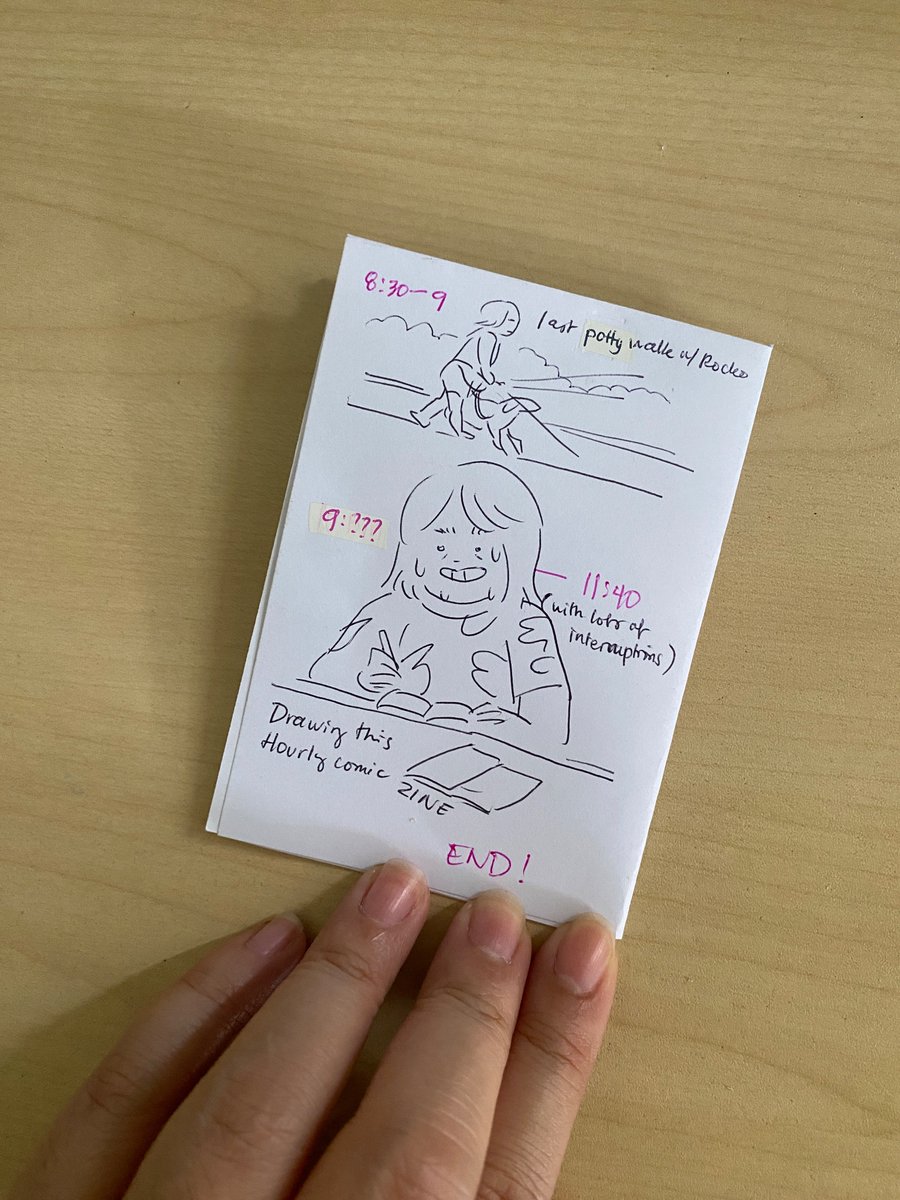 8:30—9
last potty walk w/ Rocko
9:???
— 11:40
(with lots of
interruptions)
Drawing this
Hourly comic
ZINE
END!